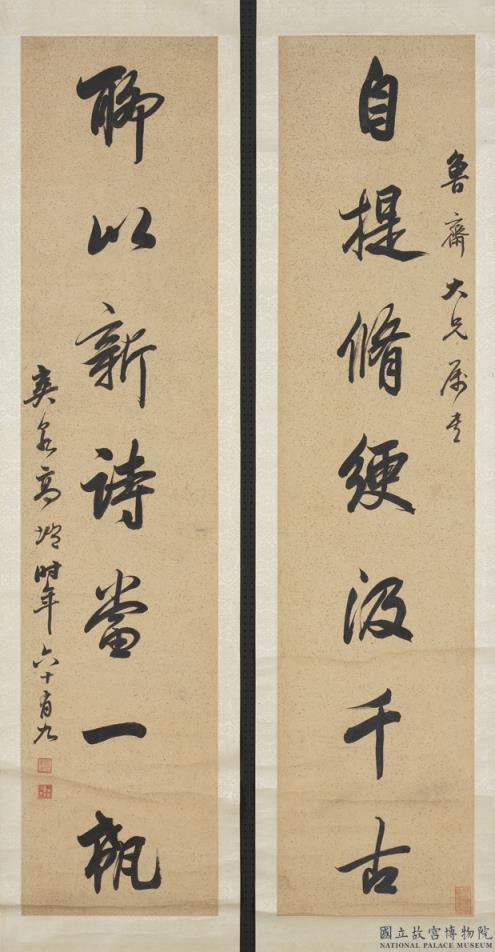 魯齋大兄屬書
自提脩綆汲千古
聊以新詩當一瓻
爽泉高塏時年六十有九
國立故宮博物院
NATIONAL PALACE MUSEUM